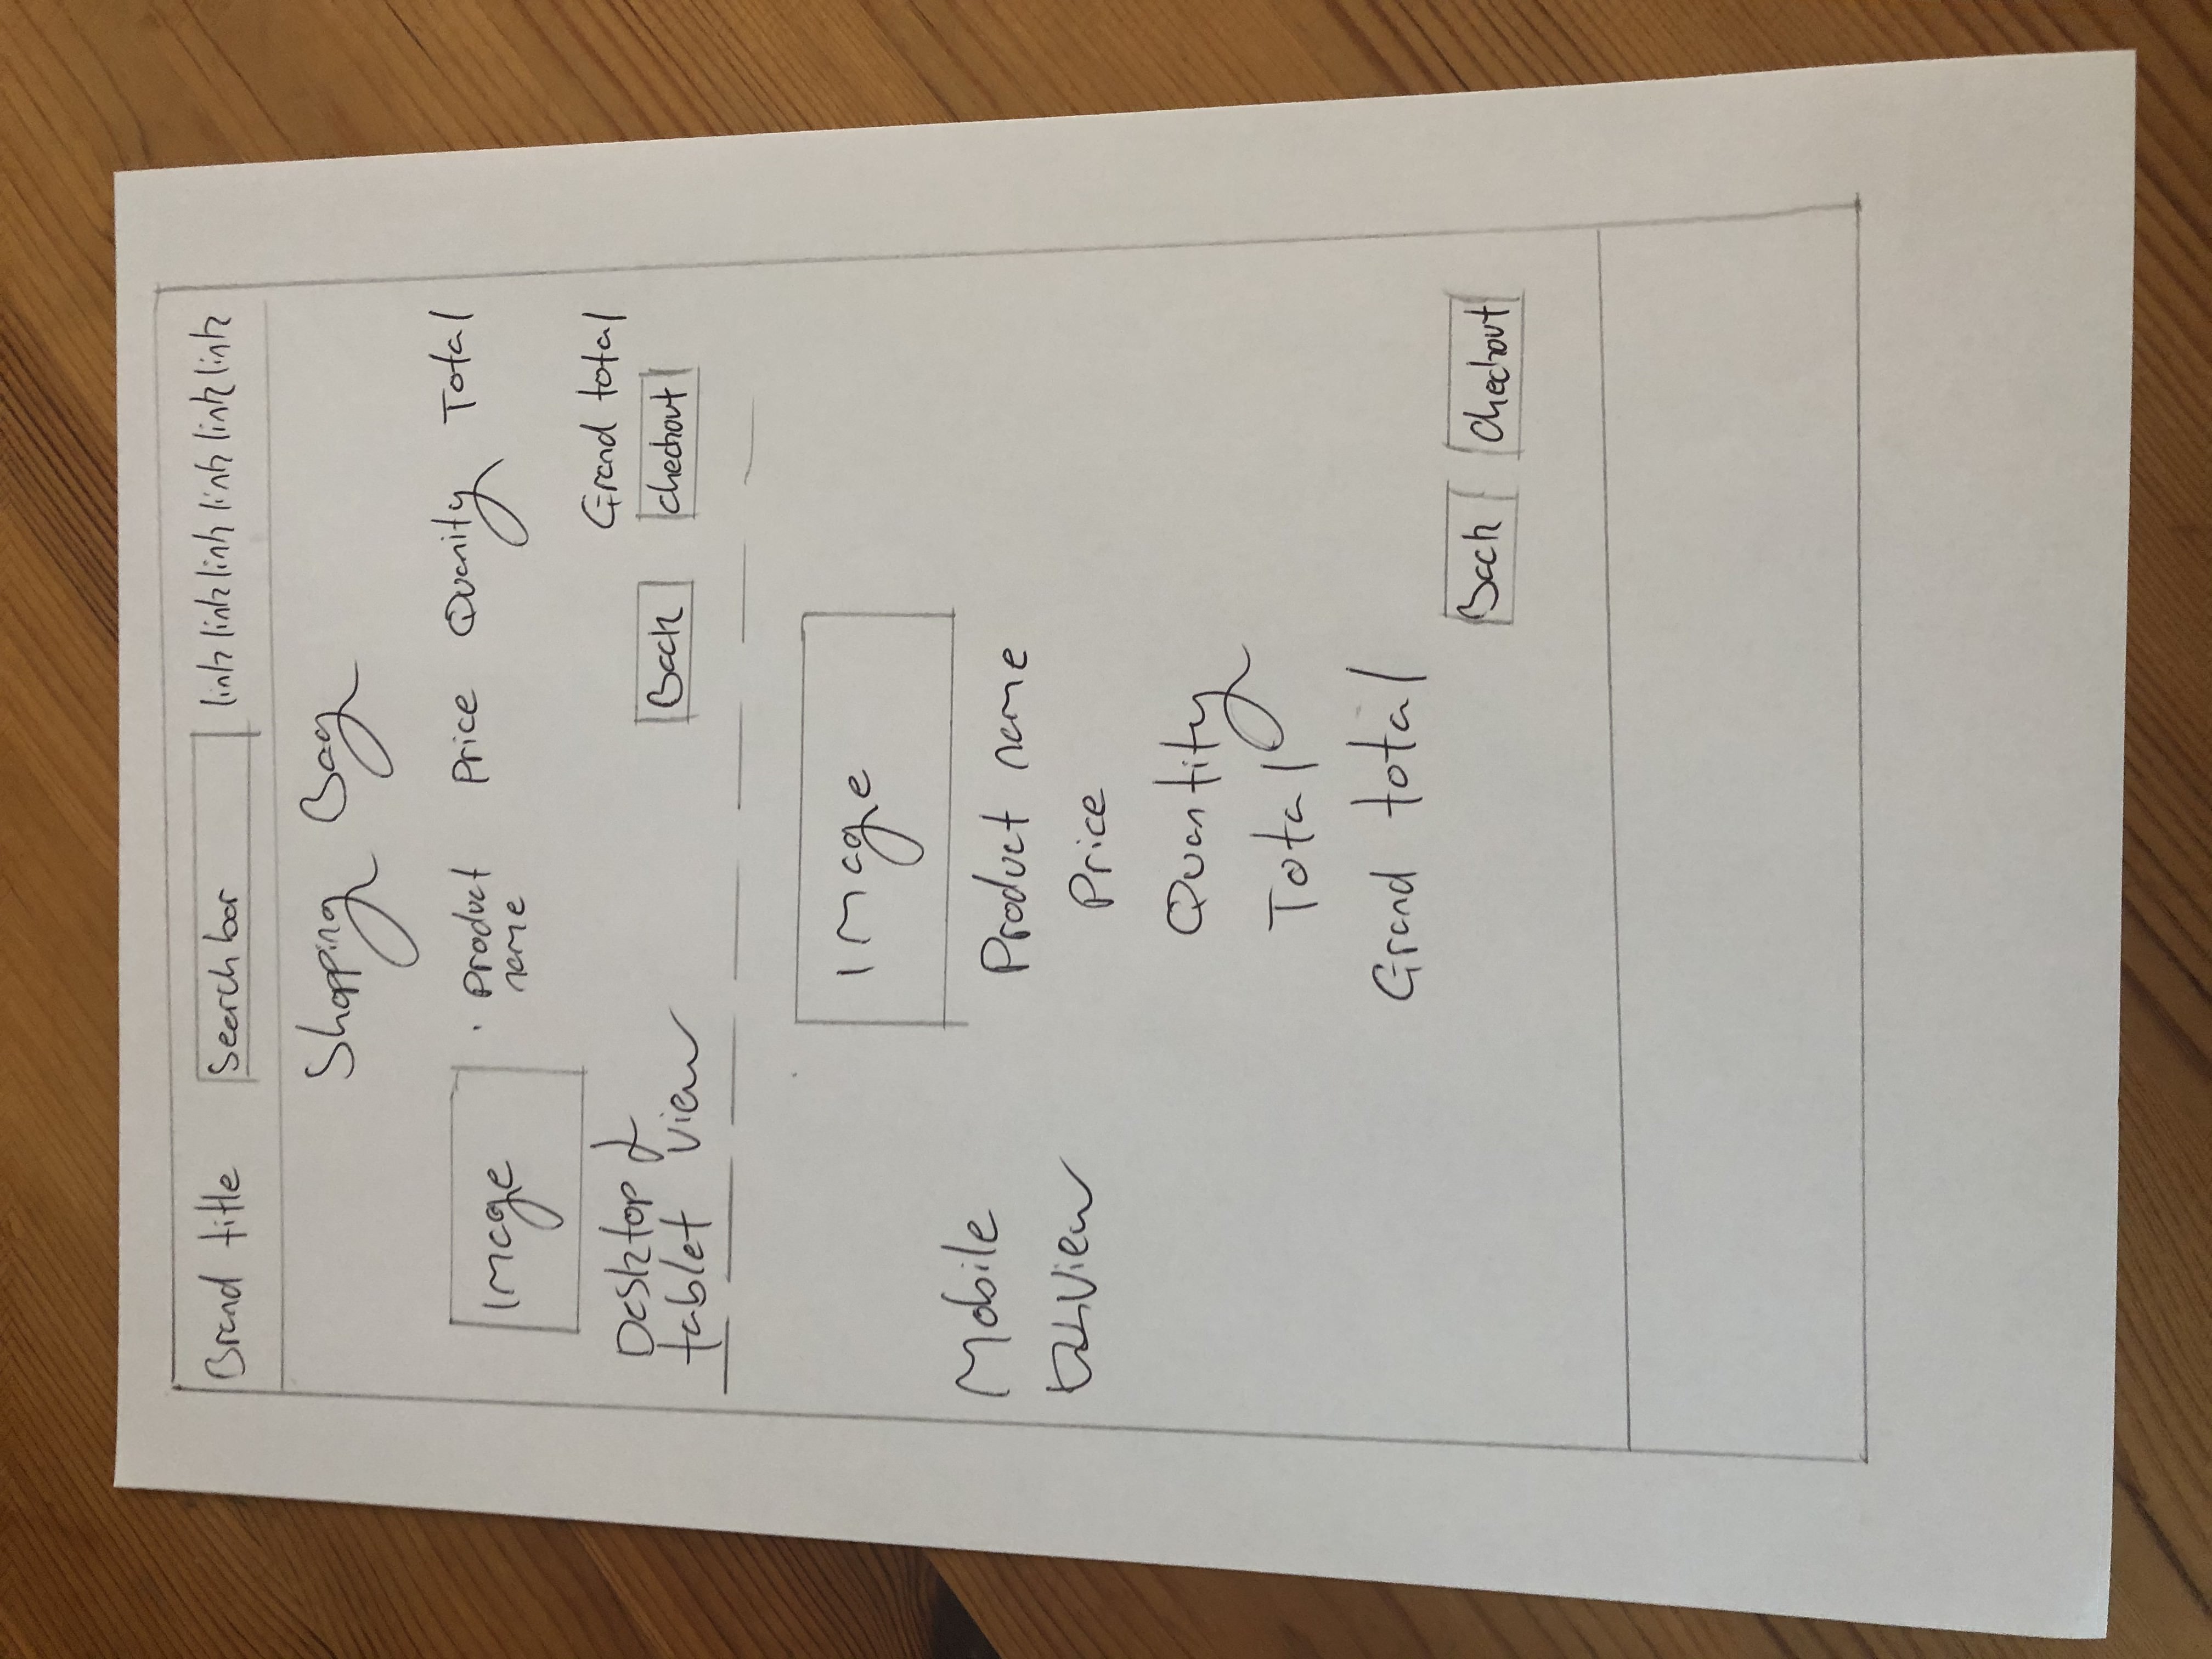 Brand title Search bar link link link link link link
Shopping Bag
Image Product Price Quanity Total
name
Grand total
Desktop &
tablet view Back Checkout
Image
Mobile Product name
View
Price
Quantity
Total
Grand total
Back Checkout